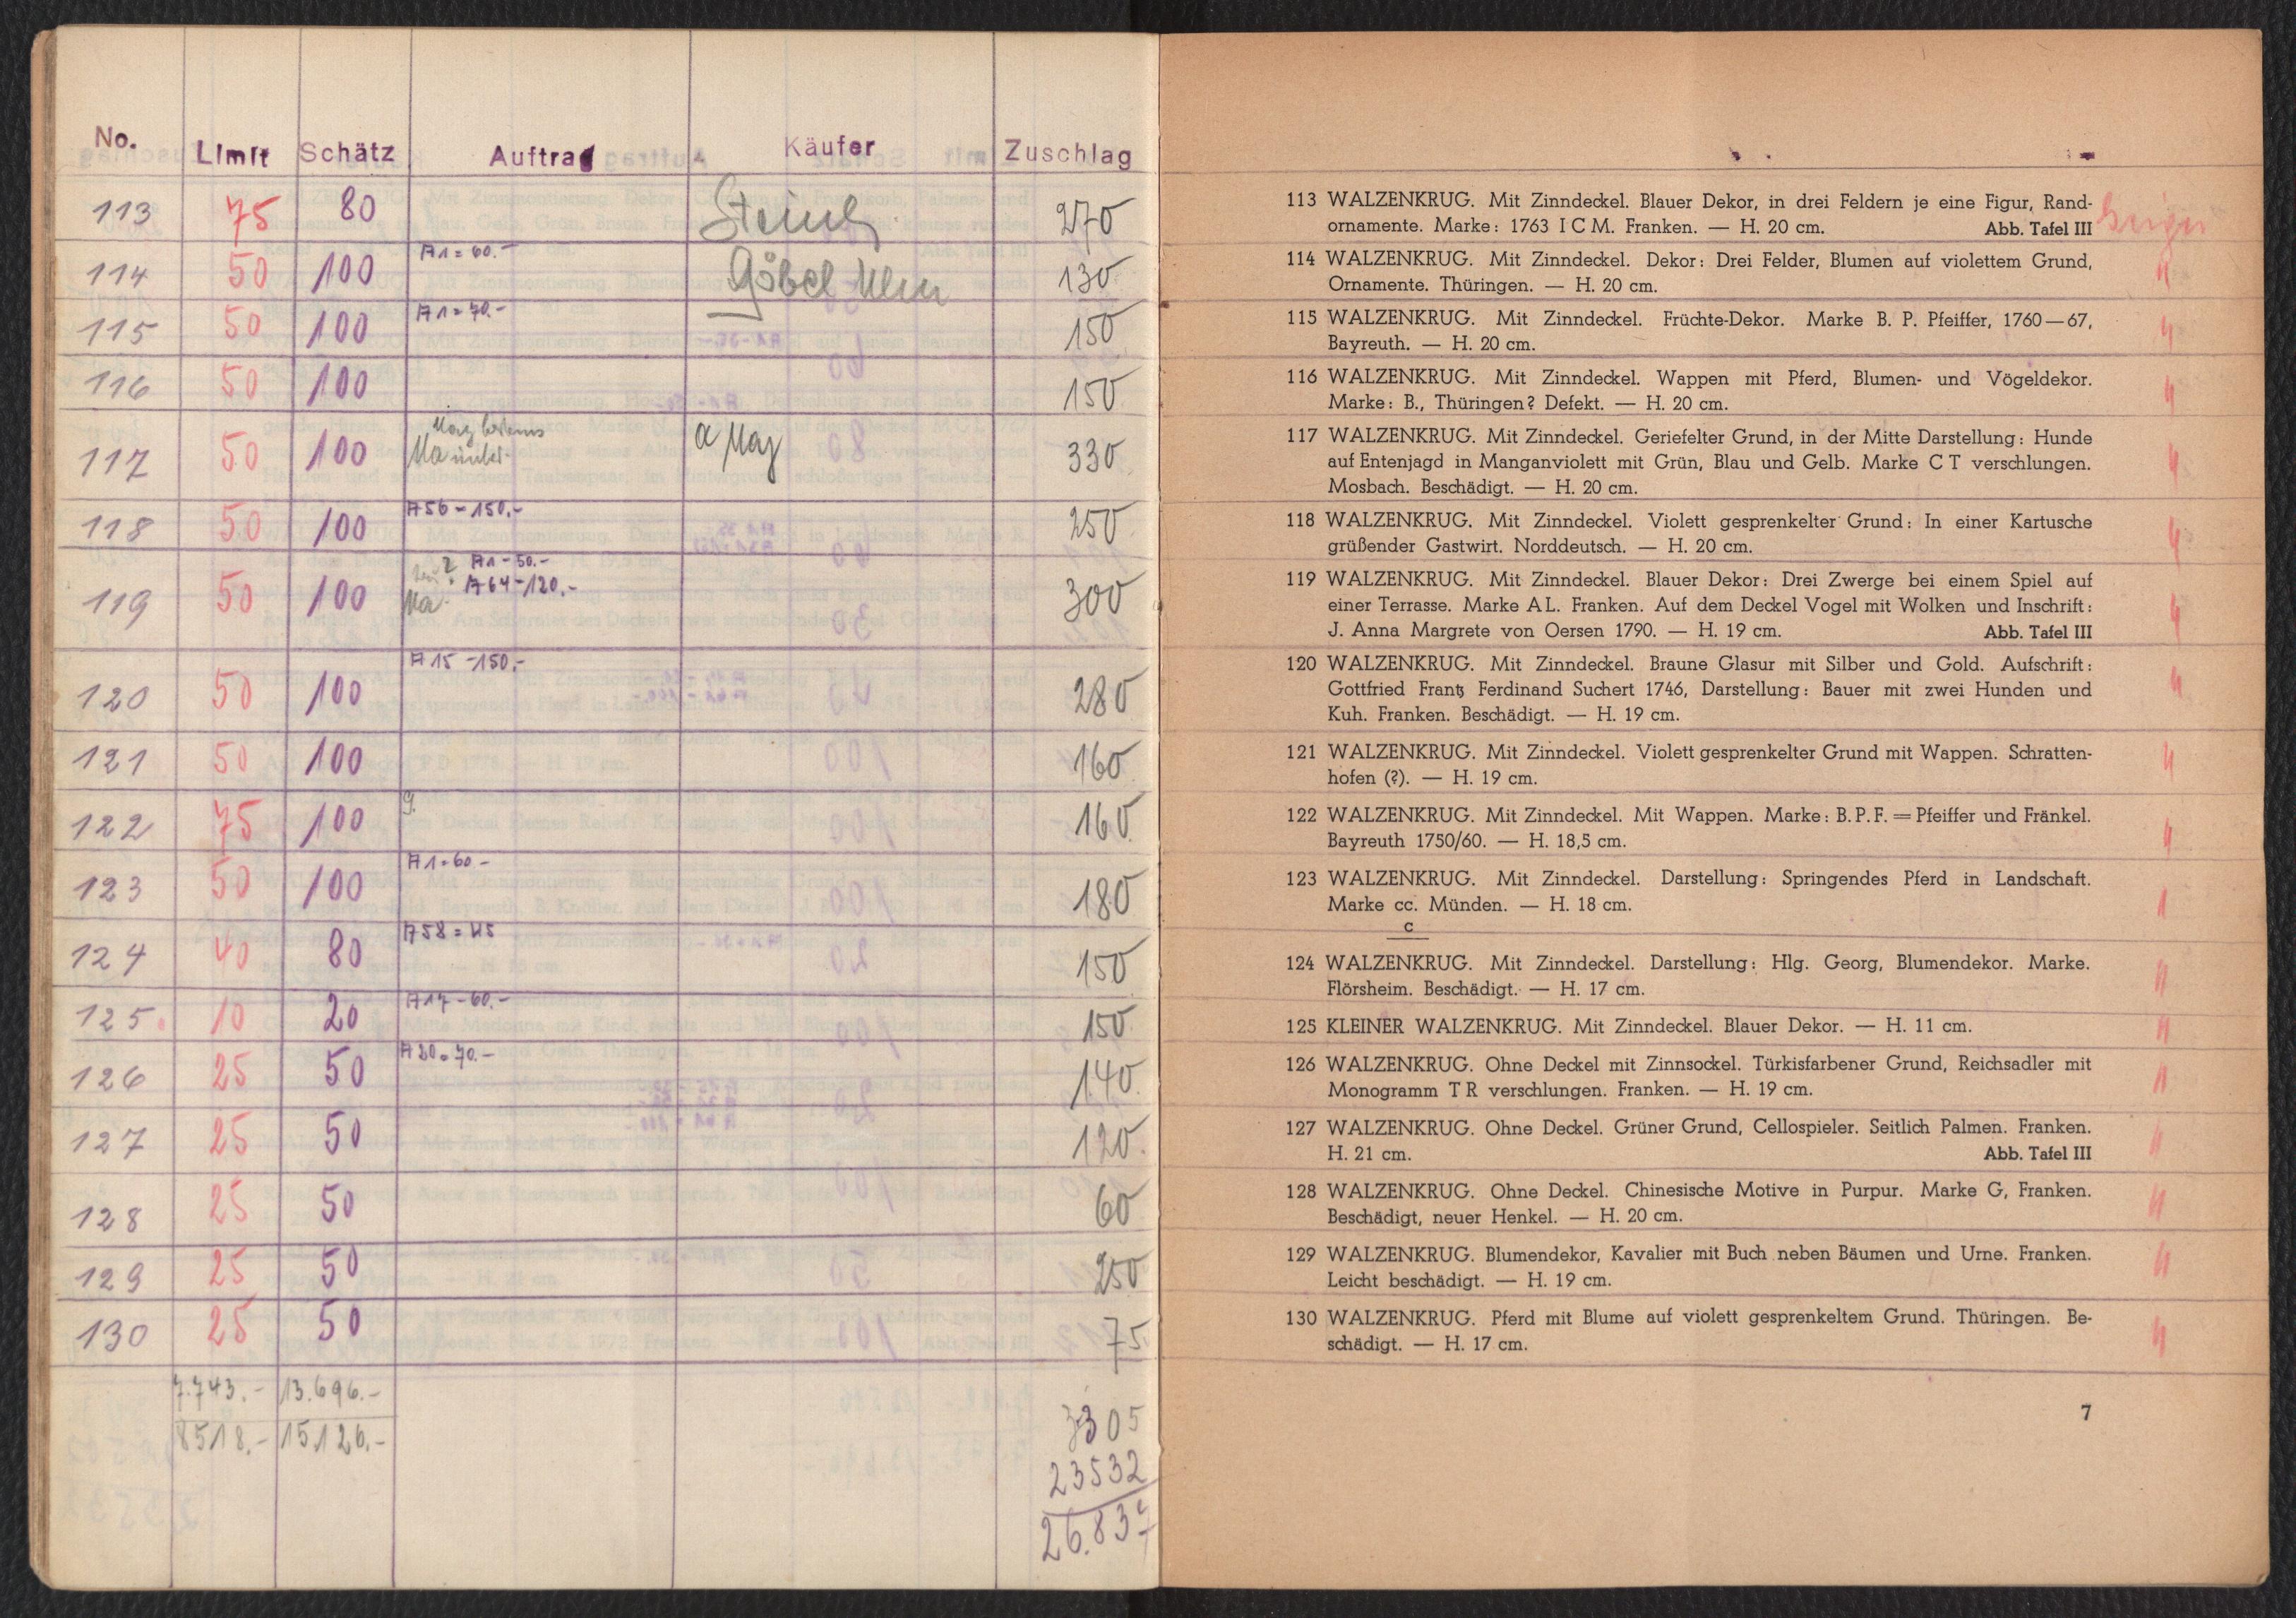 No. Limit Schätz Auftrag Käufer Zuschlag
113 75 80 270
114 50 100 A1 = 60.- Göbel 130
115 50 100 A1 = 70.- 150
116 50 100 150
117 50 100 330
118 50 100 A56 - 150.- 250
119 50 100 A1 - 50.- A64 - 120.- 300
120 50 100 A15 - 150.- 280
121 50 100 160
122 75 100 160
123 50 100 A1 = 60 - 180
124 40 80 A58 = 45 150
125. 10 20 A17 - 60.- 150
126 25 50 A20 = 70.- 140
127 25 50 120
128 25 50 60
129 25 50 250
130 25 50 75
7.743.- 13.696.-
8518.- 15.126.-
3305
23532
26.837
113 WALZENKRUG. Mit Zinndeckel. Blauer Dekor, in drei Feldern je eine Figur, Rand-
ornamente. Marke: 1763 I C M. Franken. — H. 20 cm. Abb. Tafel III
114 WALZENKRUG. Mit Zinndeckel. Dekor: Drei Felder, Blumen auf violettem Grund,
Ornamente. Thüringen. — H. 20 cm.
115 WALZENKRUG. Mit Zinndeckel. Früchte-Dekor. Marke B. P. Pfeiffer, 1760—67,
Bayreuth. — H. 20 cm.
116 WALZENKRUG. Mit Zinndeckel. Wappen mit Pferd, Blumen- und Vögeldekor.
Marke: B., Thüringen? Defekt. — H. 20 cm.
117 WALZENKRUG. Mit Zinndeckel. Geriefelter Grund, in der Mitte Darstellung: Hunde
auf Entenjagd in Manganviolett mit Grün, Blau und Gelb. Marke C T verschlungen.
Mosbach. Beschädigt. — H. 20 cm.
118 WALZENKRUG. Mit Zinndeckel. Violett gesprenkelter Grund: In einer Kartusche
grüßender Gastwirt. Norddeutsch. — H. 20 cm.
119 WALZENKRUG. Mit Zinndeckel. Blauer Dekor: Drei Zwerge bei einem Spiel auf
einer Terrasse. Marke AL. Franken. Auf dem Deckel Vogel mit Wolken und Inschrift:
J. Anna Margrete von Oersen 1790. — H. 19 cm. Abb. Tafel III
120 WALZENKRUG. Mit Zinndeckel. Braune Glasur mit Silber und Gold. Aufschrift:
Gottfried Frantz Ferdinand Suchert 1746, Darstellung: Bauer mit zwei Hunden und
Kuh. Franken. Beschädigt. — H. 19 cm.
121 WALZENKRUG. Mit Zinndeckel. Violett gesprenkelter Grund mit Wappen. Schratten-
hofen (?). — H. 19 cm.
122 WALZENKRUG. Mit Zinndeckel. Mit Wappen. Marke: B. P. F. = Pfeiffer und Fränkel.
Bayreuth 1750/60. — H. 18,5 cm.
123 WALZENKRUG. Mit Zinndeckel. Darstellung: Springendes Pferd in Landschaft.
Marke cc. Münden. — H. 18 cm.
c
124 WALZENKRUG. Mit Zinndeckel. Darstellung: Hlg. Georg, Blumendekor. Marke.
Flörsheim. Beschädigt. — H. 17 cm.
125 KLEINER WALZENKRUG. Mit Zinndeckel. Blauer Dekor. — H. 11 cm.
126 WALZENKRUG. Ohne Deckel mit Zinnsockel. Türkisfarbener Grund, Reichsadler mit
Monogramm T R verschlungen. Franken. — H. 19 cm.
127 WALZENKRUG. Ohne Deckel. Grüner Grund, Cellospieler. Seitlich Palmen. Franken.
H. 21 cm. Abb. Tafel III
128 WALZENKRUG. Ohne Deckel. Chinesische Motive in Purpur. Marke G, Franken.
Beschädigt, neuer Henkel. — H. 20 cm.
129 WALZENKRUG. Blumendekor, Kavalier mit Buch neben Bäumen und Urne. Franken.
Leicht beschädigt. — H. 19 cm.
130 WALZENKRUG. Pferd mit Blume auf violett gesprenkeltem Grund. Thüringen. Be-
schädigt. — H. 17 cm.
7